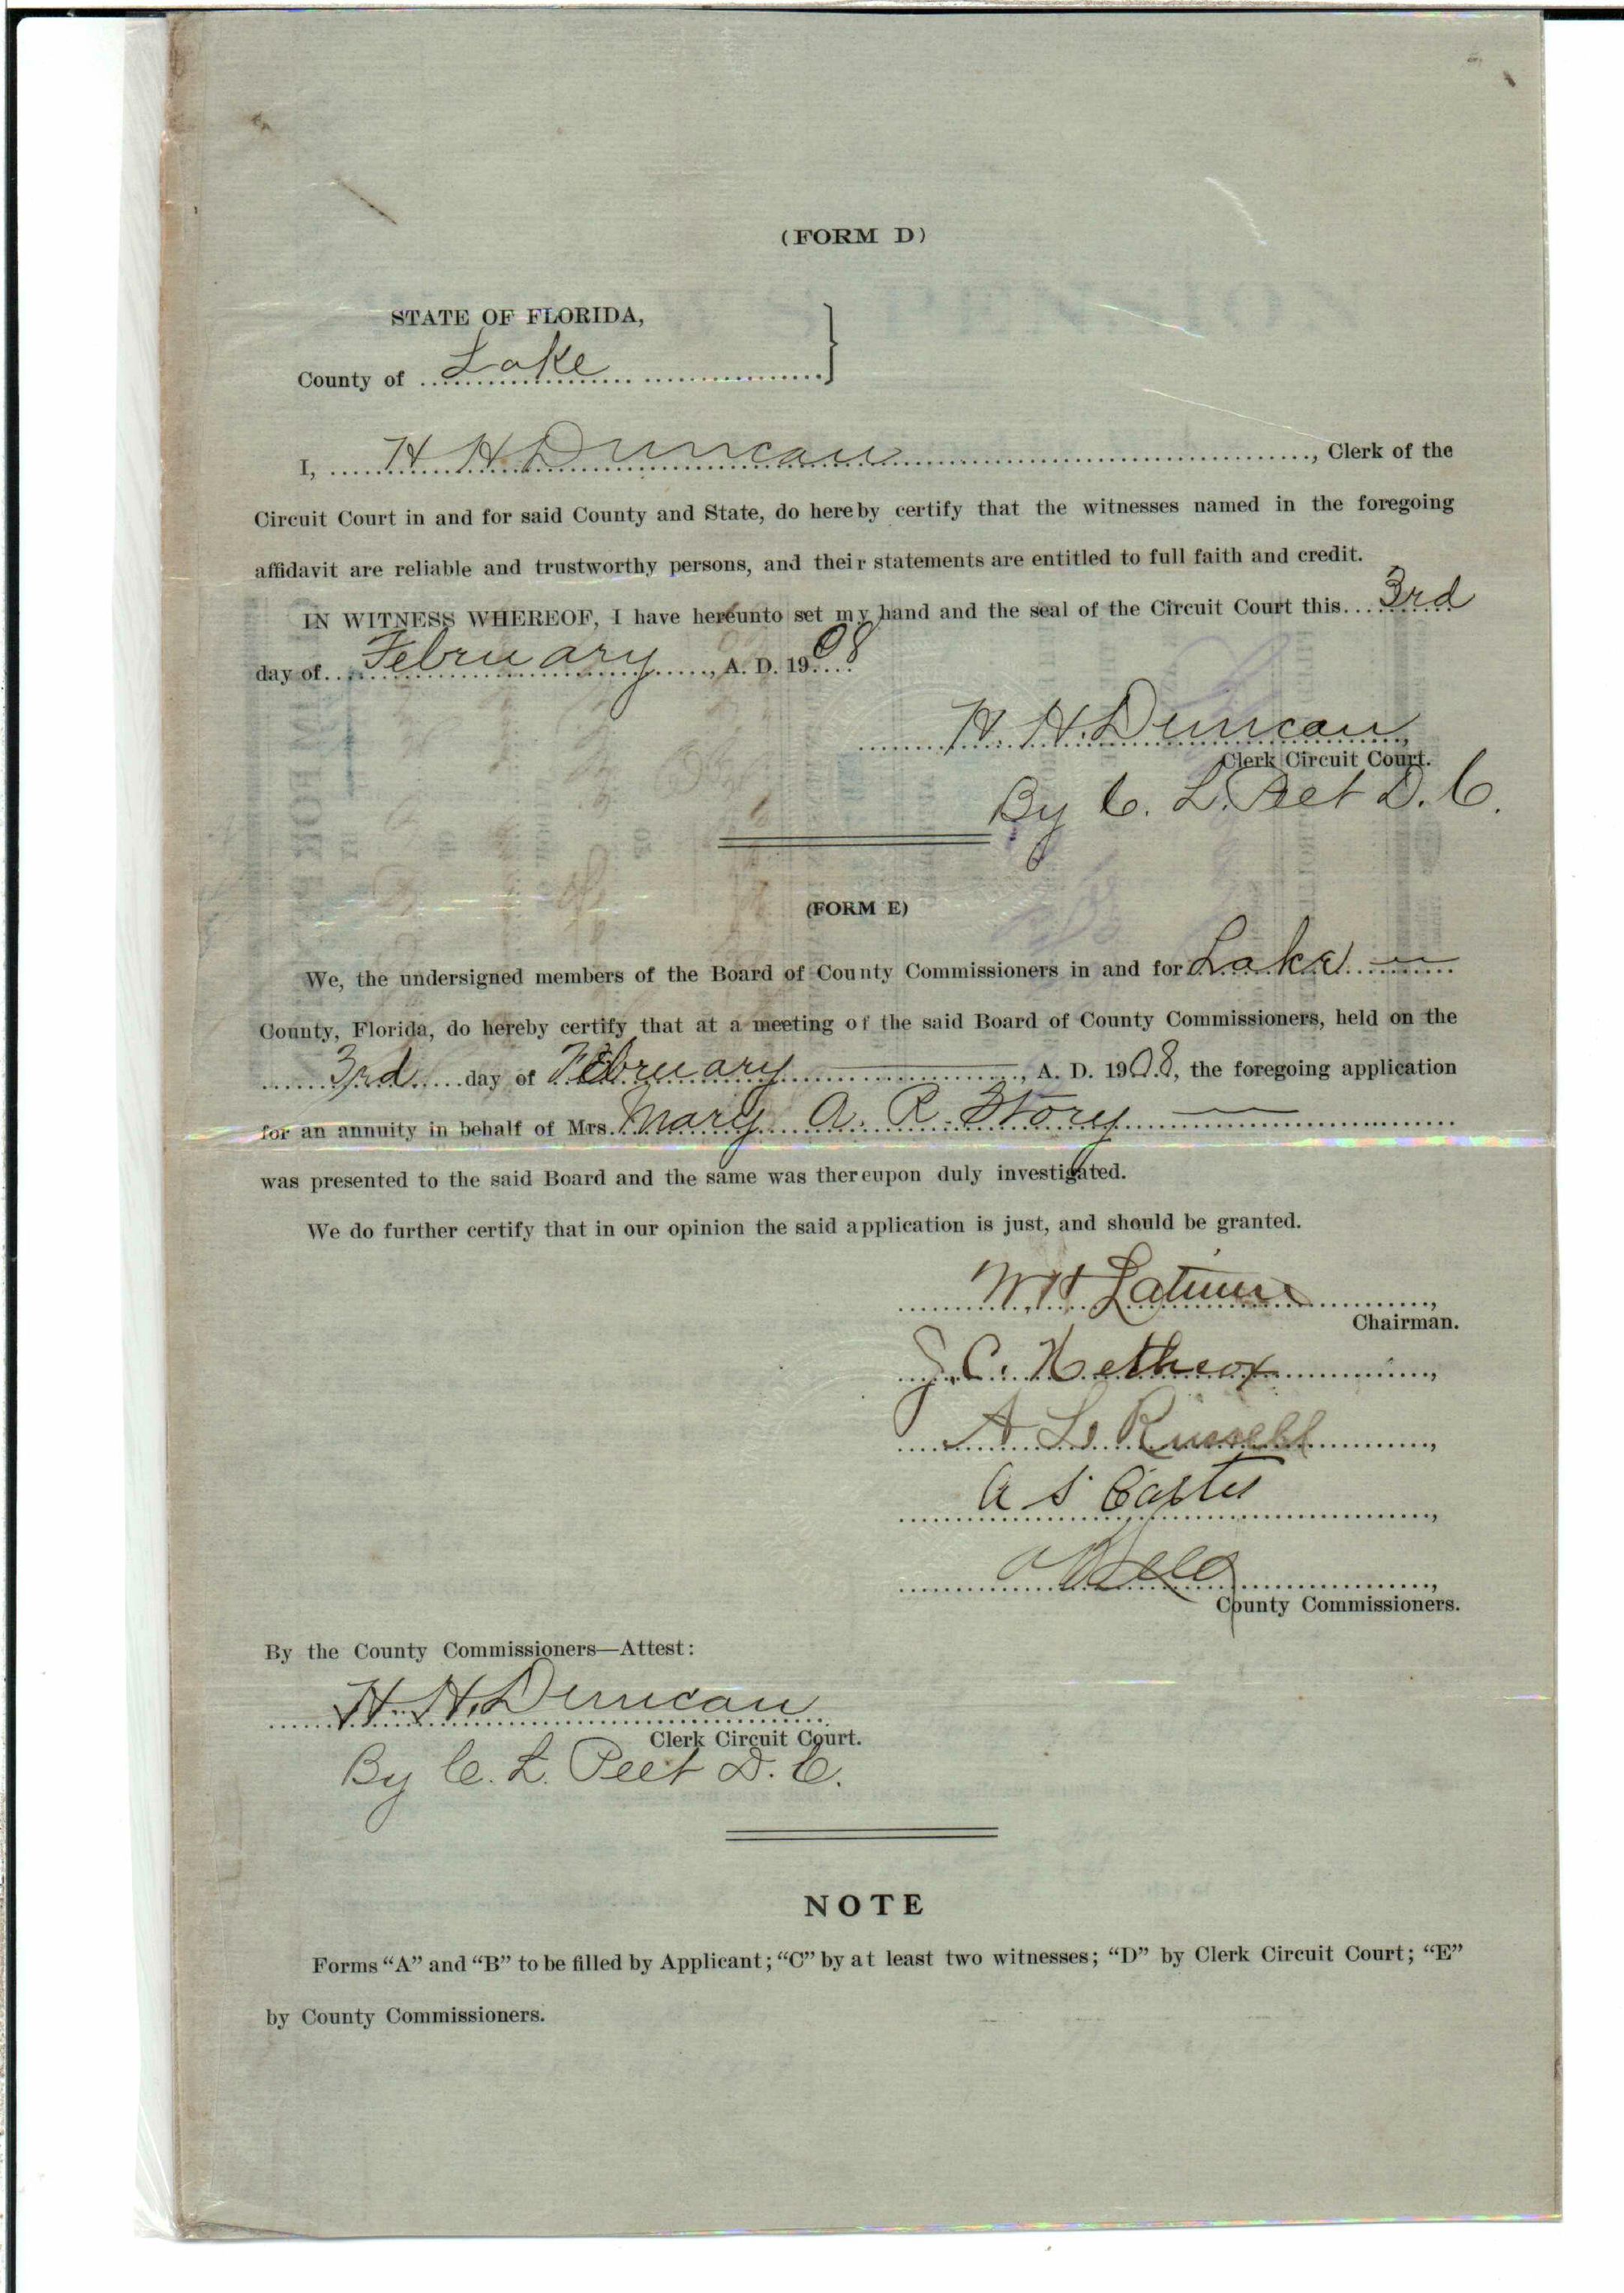 (FORM D)
STATE OF FLORIDA,
County of Lake
I, H H Duncan, Clerk of the
Circuit Court in and for said County and State, do hereby certify that the witnesses named in the foregoing
affidavit are reliable and trustworthy persons, and their statements are entitled to full faith and credit.
IN WITNESS WHEREOF, I have hereunto set my hand and the seal of the Circuit Court this 3rd
day of February, A. D. 1908
H. H. Duncan,
Clerk Circuit Court.
By C. L. Peet D. C.
(FORM E)
We, the undersigned members of the Board of County Commissioners in and for Lake
County, Florida, do hereby certify that at a meeting of the said Board of County Commissioners, held on the
3rd day of February, A. D. 1908, the foregoing application
for an annuity in behalf of Mrs. Mary A. R. Story
was presented to the said Board and the same was thereupon duly investigated.
We do further certify that in our opinion the said application is just, and should be granted.
Chairman.
A L Russell,
County Commissioners.
By the County Commissioners—Attest:
H. H. Duncan
Clerk Circuit Court.
By C. L. Peet D. C.
NOTE
Forms “A” and “B” to be filled by Applicant; “C” by at least two witnesses; “D” by Clerk Circuit Court; “E”
by County Commissioners.